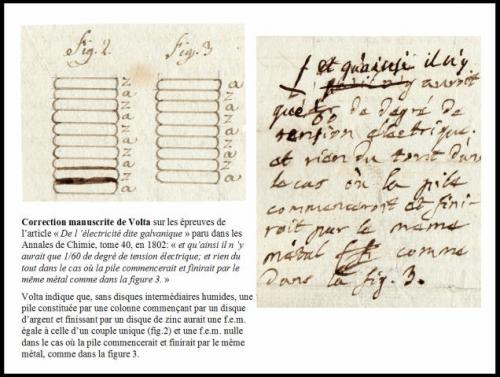 fig. 2
fig. 3
z
a
z
a
z
a
z
a
z
a
a
z
a
z
a
z
a
z
a
et qu'ainsi il n'y
auroit
que 1/60 de degré de
tension électrique;
et rien du tout dans
le cas où la pile
commenceroit et fini-
roit par le même
métal comme
dans la fig. 3.
Correction manuscrite de Volta sur les épreuves de
l'article « De l 'électricité dite galvanique » paru dans les
Annales de Chimie, tome 40, en 1802: « et qu'ainsi il n 'y
aurait que 1/60 de degré de tension électrique; et rien du
tout dans le cas où la pile commencerait et finirait par le
même métal comme dans la figure 3. »
Volta indique que, sans disques intermédiaires humides, une
pile constituée par une colonne commençant par un disque
d'argent et finissant par un disque de zinc aurait une f.e.m.
égale à celle d'un couple unique (fig.2) et une f.e.m. nulle
dans le cas où la pile commencerait et finirait par le même
métal, comme dans la figure 3.